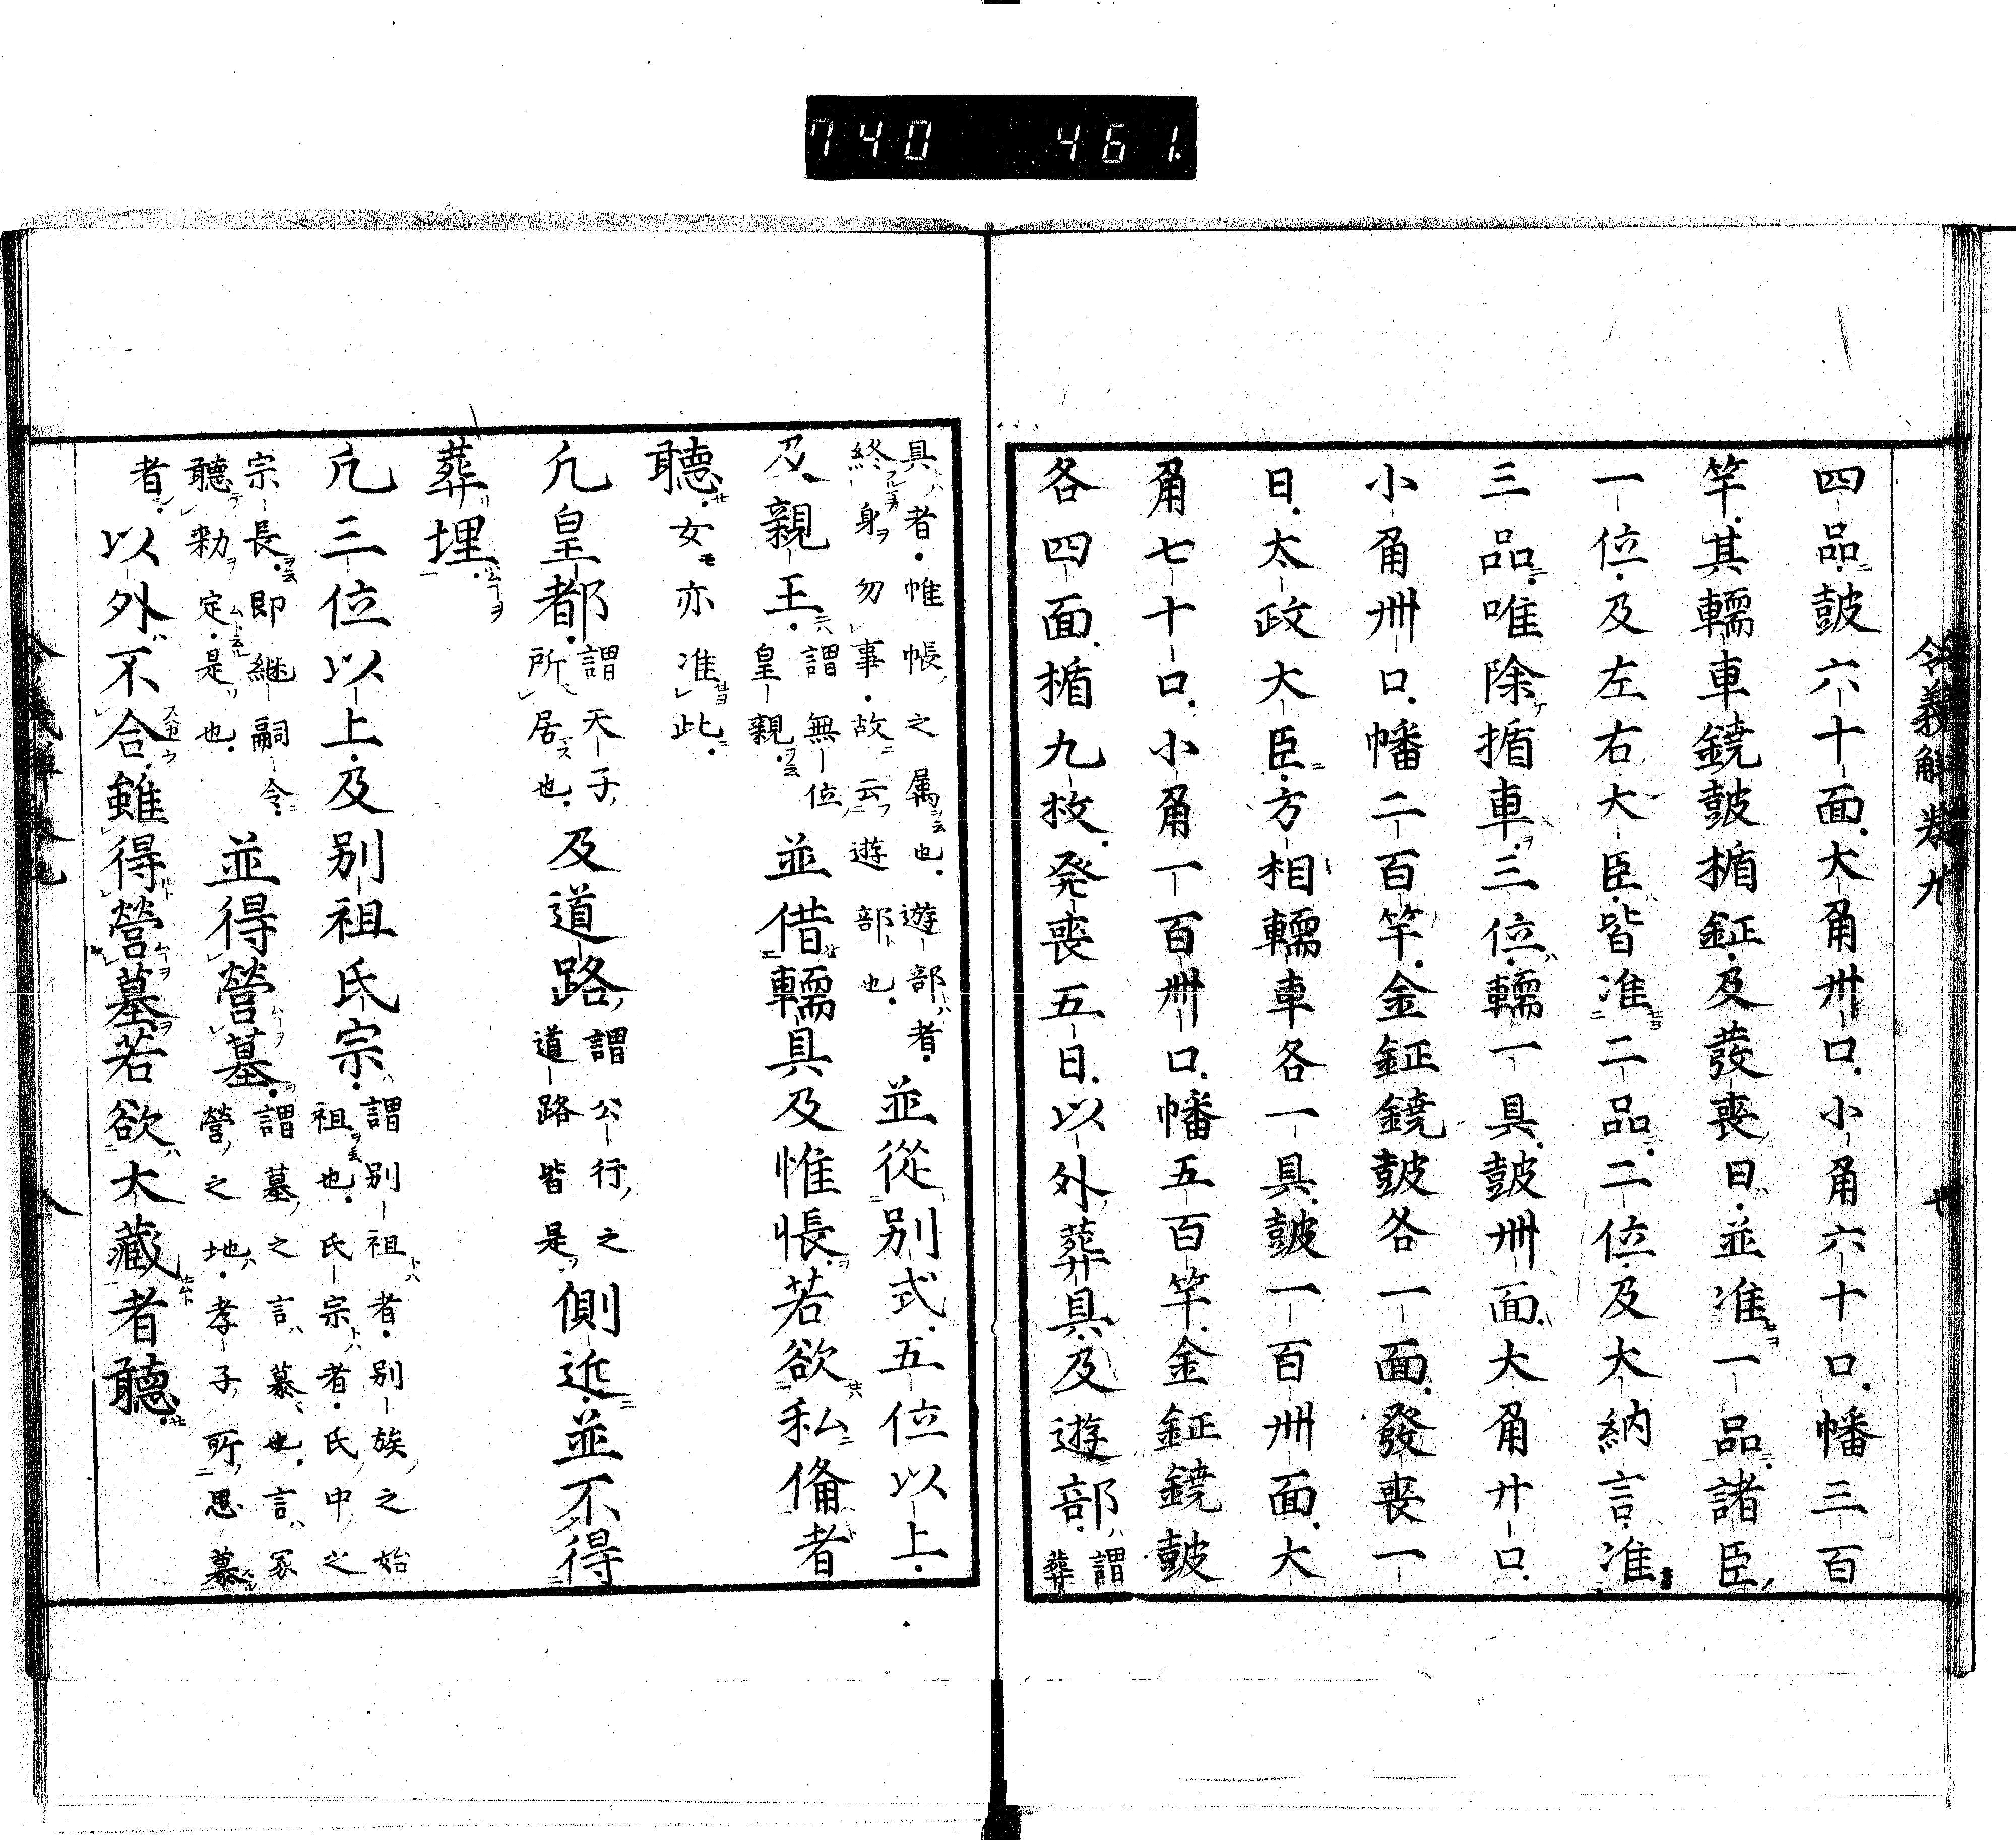 740 461
令義解巻九
四品鼓六十面大角卅口小角六十口幡三百
竿其轜車鐃鼓楯鉦及發喪日並准一品諸臣
一位及左右大臣皆准二品二位及大納言准
三品唯除揗車三位轜一具鼓卌面大角廿口
小角卌口幡二百竿金鉦鐃鼓各一面發喪一
日太政大臣方相轜車各一具鼓一百卌面大
角七十口小角一百卌口幡五百竿金鉦鐃鼓
各四面楯九枚発喪五日以外葬具及遊部謂葬
具者帷帳之属也遊部者
終身勿事故云遊部也
並從別式五位以上
及親王謂無位皇親並借轜具及惟帳若欲私備者
聴女亦准此
凢皇都謂天子所居也及道路謂公行之道路皆是側近並不得
葬埋
凢三位以上及別祖氏宗謂別祖者別族之始祖也氏宗者氏中之
宗長即継嗣令聴勅定是也並得營墓謂墓之言慕也言冢營之地孝子所思慕
者以外不合雖得營墓若欲大蔵者聴